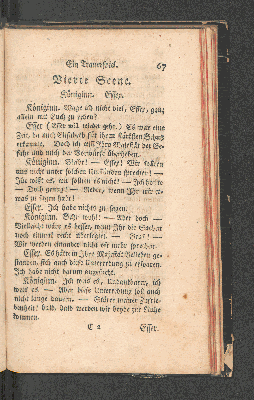 Ein Trauerspiel. 67
Vierte Scene.
Königinn. Essex.
Königinn. Wage ich nicht viel, Essex, ganz
allein mit Euch zu reden?
Essex (Essex will wieder gehn.) Es war eine
Zeit, da auch Elisabeth für ihren stärksten Schutz
erkannte. Doch ich will Ihro Majestät der Ge-
fahr und mich der Vorwürfe überheben.
Königinn. Bleibt! — Essex! Wir sollten
uns nicht unter solchen Umständen sprechen! —
Ihr wollt es, wir sollten es nicht! — Ich hörte
— Doch genug! — Redet, wenn Ihr mir et-
was zu sagen habt!
Essex. Ich habe nichts zu sagen.
Königinn. Sehr wohl! — Aber doch —
Vielleicht wäre es besser, wann Ihr die Sache
noch einmal recht überleget. — Graf! —
Wir werden einander nicht oft mehr sprechen.
Essex. Es hätte in Ihro Majestät Belieben ge-
standen, sich auch diese Unterredung zu ersparen.
Ich habe nicht darum angesucht.
Königinn. Ich weis es, Undankbarer, ich
weis es. — Aber diese Unterredung soll auch
nicht lange dauern. — Eurer Zufrie-
denheit! bald werden wir beyde zur Ruhe
kommen.
C 2 Essex.